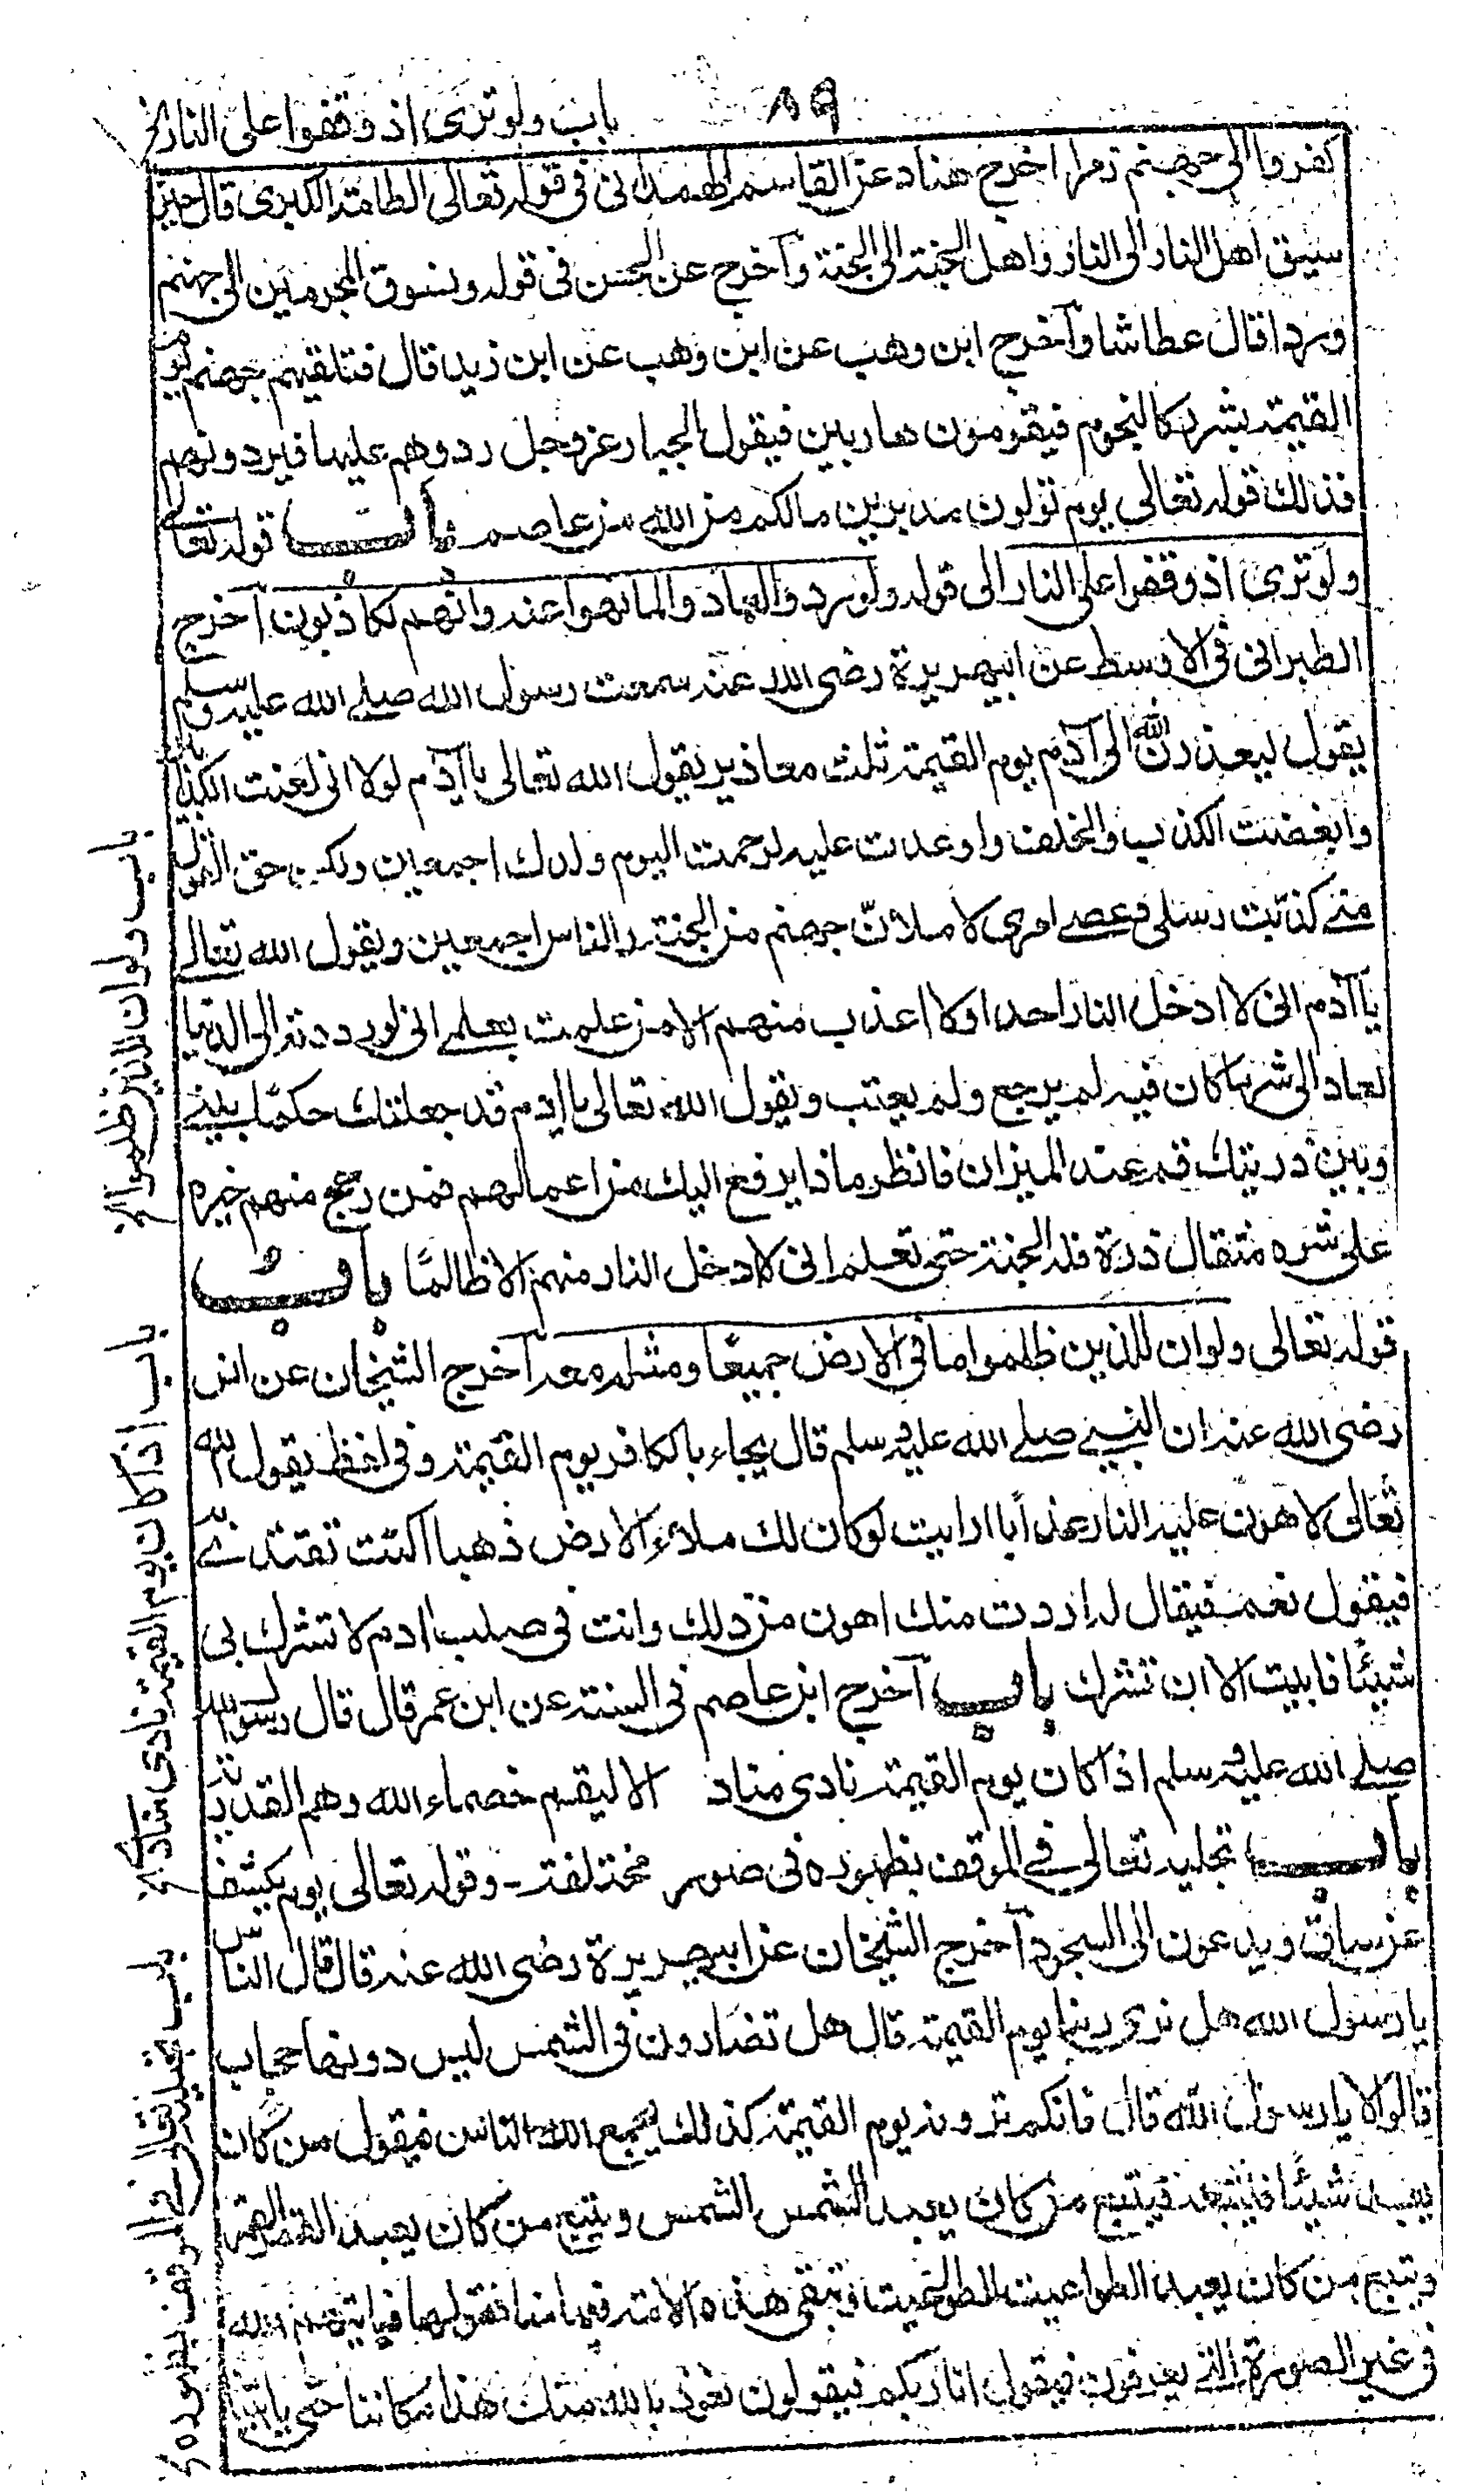 ٨٩
باب ولو ترى اذ وقفوا على النار الخ
كفروا الى جهنم زمرا اخرج هناد عن القاسم الهمدانى فى قوله تعالى الطامة الكبرى قال حين
سيق اهل النار الى النار واهل الجنة الى الجنة وآخرج عن الحسن فى قوله ونسوق المجرمين الى جهنم
وردا قال عطاشا وآخرج ابن وهب عن ابن وهب عن ابن زيد قال فتلقيهم جهنم يوم
القيمة بشرر كالنجوم فيقومون هاربين فيقول الجبار عزوجل ردوهم عليها فيردونهم
فذلك قوله تعالى يوم تولون مدبرين مالكم من الله من عاصم باب قوله تعالى
ولو ترى اذ وقفوا على النار الى قوله ولو ردوا لعادوا لما نهوا عنه وانهم لكاذبون آخرج
الطبرانى فى الاوسط عن ابيهريرة رضى الله عنه سمعت رسول الله صلے الله عليه وسلم
يقول ليعذرن الله الى آدم يوم القيمة ثلث معاذير يقول الله تعالى يا آدم لولا انى لعنت الكذابين
وابغضت الكذب والخلف واوعدت عليه لرحمت اليوم ولدك اجمعين ولكن حق القول
منے كذبت رسلى وعصے امرى لاملان جهنم من الجنة والناس اجمعين ويقول الله تعالے
يا آدم انى لا ادخل النار احدا ولا اعذب منهم الا من علمت بعلمے انى لو رددته الى الدنيا
لعاد الى شر ما كان فيه لم يرجع ولم يعتب ويقول الله تعالى يا ادم قد جعلتك حكما بينے
وبين ذريتك قم عند الميزان فانظر ماذا يرفع اليك من اعمالهم فمن رجح منهم خيره
على شره مثقال ذرة فله الجنة حتى تعلم انى لا ادخل النار منهم الا ظالما باب
قوله تعالى ولو ان للذين ظلموا ما فى الارض جميعا ومثله معه آخرج الشيخان عن انس
رضى الله عنه ان النبے صلے الله عليه وسلم قال يجاء بالكافر يوم القيمة وفى لفظ يقول الله
تعالى لاهون عليه النار عذابا ارايت لو كان لك ملاء الارض ذهبا اكنت تفتدے
فيقول نعم فيقال له اردت منك اهون من ذلك وانت فى صلب ادم لا تشرك بى
شيئا فابيت الا ان تشرك باب آخرج ابن عاصم فى السنة عن ابن عمر قال قال رسول الله
صلے الله عليه وسلم اذا كان يوم القيمة نادى مناد الا ليقم خصماء الله وهم القدرية
باب تجليه تعالى فے الموقف بظهوره فى صور مختلفة وقوله تعالى يوم يكشف
عن ساق ويدعون الى السجود آخرج الشيخان عن ابيهريرة رضى الله عنه قال قال الناس
يا رسول الله هل نرى ربنا يوم القيمة قال هل تضارون فى الشمس ليس دونها حجاب
قالوا لا يا رسول الله قال فانكم ترونه يوم القيمة كذلك يجمع الله الناس فيقول من كان
يعبد شيئا فليتبعه فيتبع من كان يعبد الشمس الشمس ويتبع من كان يعبد القمر القمر
ويتبع من كان يعبد الطواغيت الطواغيت وتبقى هذه الامة فيها منافقوها فياتيهم الله
فى غير الصورة التے يعرفون فيقول انا ربكم فيقولون نعوذ بالله منك هذا مكاننا حتى ياتينا
باب ولو ان للذين ظلموا الخ
باب اذا كان يوم القيمة نادى مناد الخ
باب تجليه تعالى فے الموقف بظهوره الخ